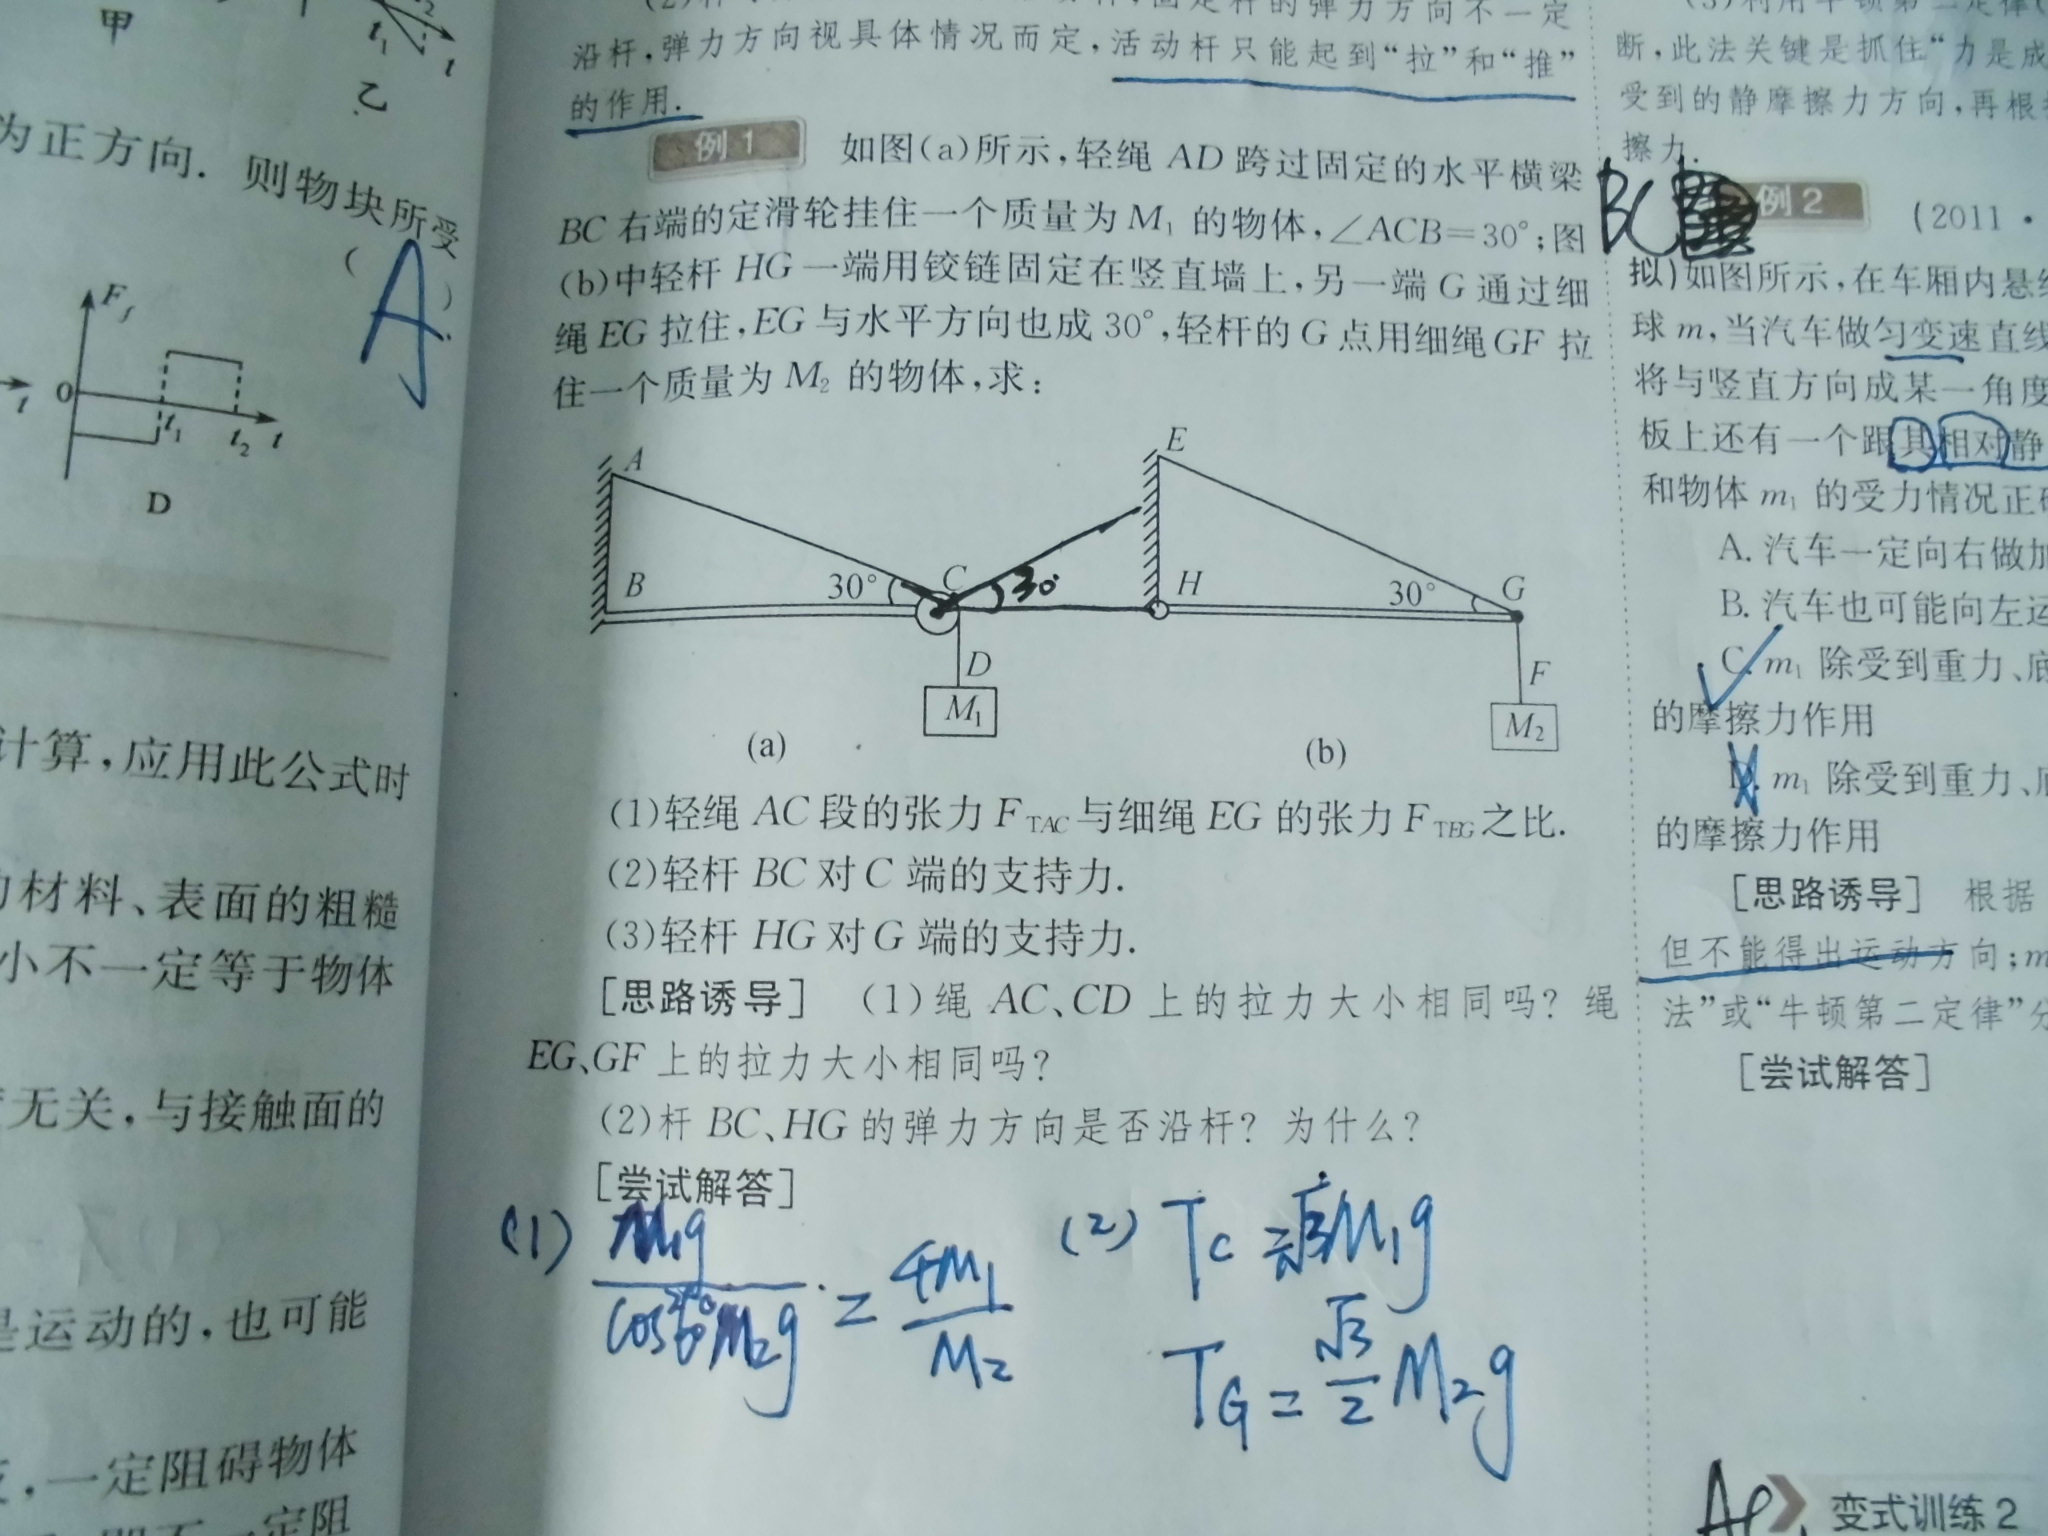 甲
t₁
t
乙
为正方向. 则物块所受
( A ).
F_f
t
0
t₁
t₂
t
D
计算,应用此公式时
材料、表面的粗糙
小不一定等于物体
无关,与接触面的
是运动的,也可能
,一定阻碍物体
一定阻
弹力方向不一定
沿杆,弹力方向视具体情况而定,活动杆只能起到“拉”和“推”
的作用.
例1 如图(a)所示,轻绳 AD 跨过固定的水平横梁
BC 右端的定滑轮挂住一个质量为 M₁ 的物体,∠ACB=30°;图
(b)中轻杆 HG 一端用铰链固定在竖直墙上,另一端 G 通过细
绳 EG 拉住,EG 与水平方向也成 30°,轻杆的 G 点用细绳 GF 拉
住一个质量为 M₂ 的物体,求:
A
B
30°
C
30°
D
M₁
(a)
E
H
30°
G
F
M₂
(b)
(1)轻绳 AC 段的张力 F_TAC 与细绳 EG 的张力 F_TEG 之比.
(2)轻杆 BC 对 C 端的支持力.
(3)轻杆 HG 对 G 端的支持力.
[思路诱导] (1)绳 AC、CD 上的拉力大小相同吗? 绳
EG、GF 上的拉力大小相同吗?
(2)杆 BC、HG 的弹力方向是否沿杆? 为什么?
[尝试解答]
(1) M₁g
= 4M₁/M₂
(2) T_C = M₁g
T_G = √3/2 M₂g
断,此法关键是抓住“力是成
受到的静摩擦力方向,再根
擦力.
BC
例2 (2011·
拟)如图所示,在车厢内悬
球 m,当汽车做匀变速直线
将与竖直方向成某一角度
板上还有一个跟其相对静
和物体 m₁ 的受力情况正
A. 汽车一定向右做
B. 汽车也可能向左
C. m₁ 除受到重力、
的摩擦力作用
D. m₁ 除受到重力、
的摩擦力作用
[思路诱导] 根据
但不能得出运动方向;m
法”或“牛顿第二定律”分
[尝试解答]
变式训练2